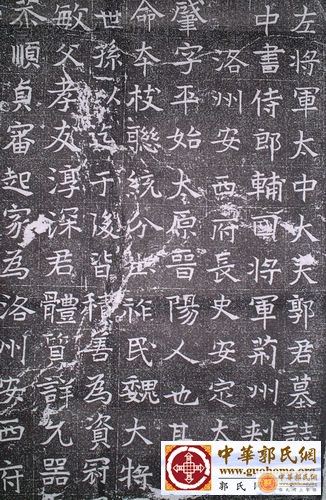 左將軍太中大夫郭君墓誌
中書侍郎輔國將軍荊州刺
洛州安西府長史安定太
肇字平始太原晉陽人也其
命本枝聯統分祚民魏大將
世孫以迄于後皆積善為資冠
敏父孝友淳深君體質詳允器
恭順貞審起家為洛州安西府
中華郭氏網
www.guohome.org
郭氏
中華郭氏網